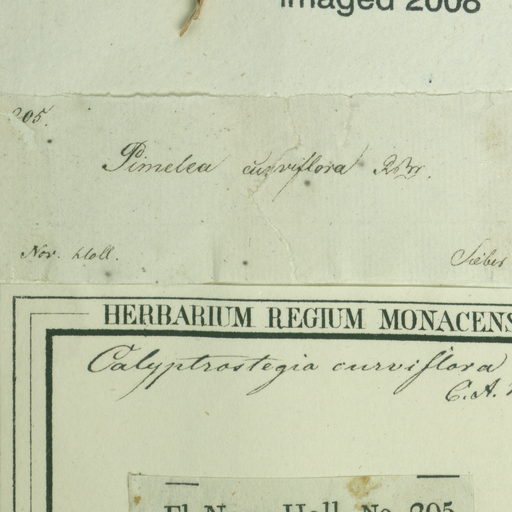 imaged 2008
205.
Pimelea curviflora RBr.
Nov. Holl.
Sieber
HERBARIUM REGIUM MONACENS
Calyptrostegia curviflora
C.A.
Fl. Nov. Holl. No. 205